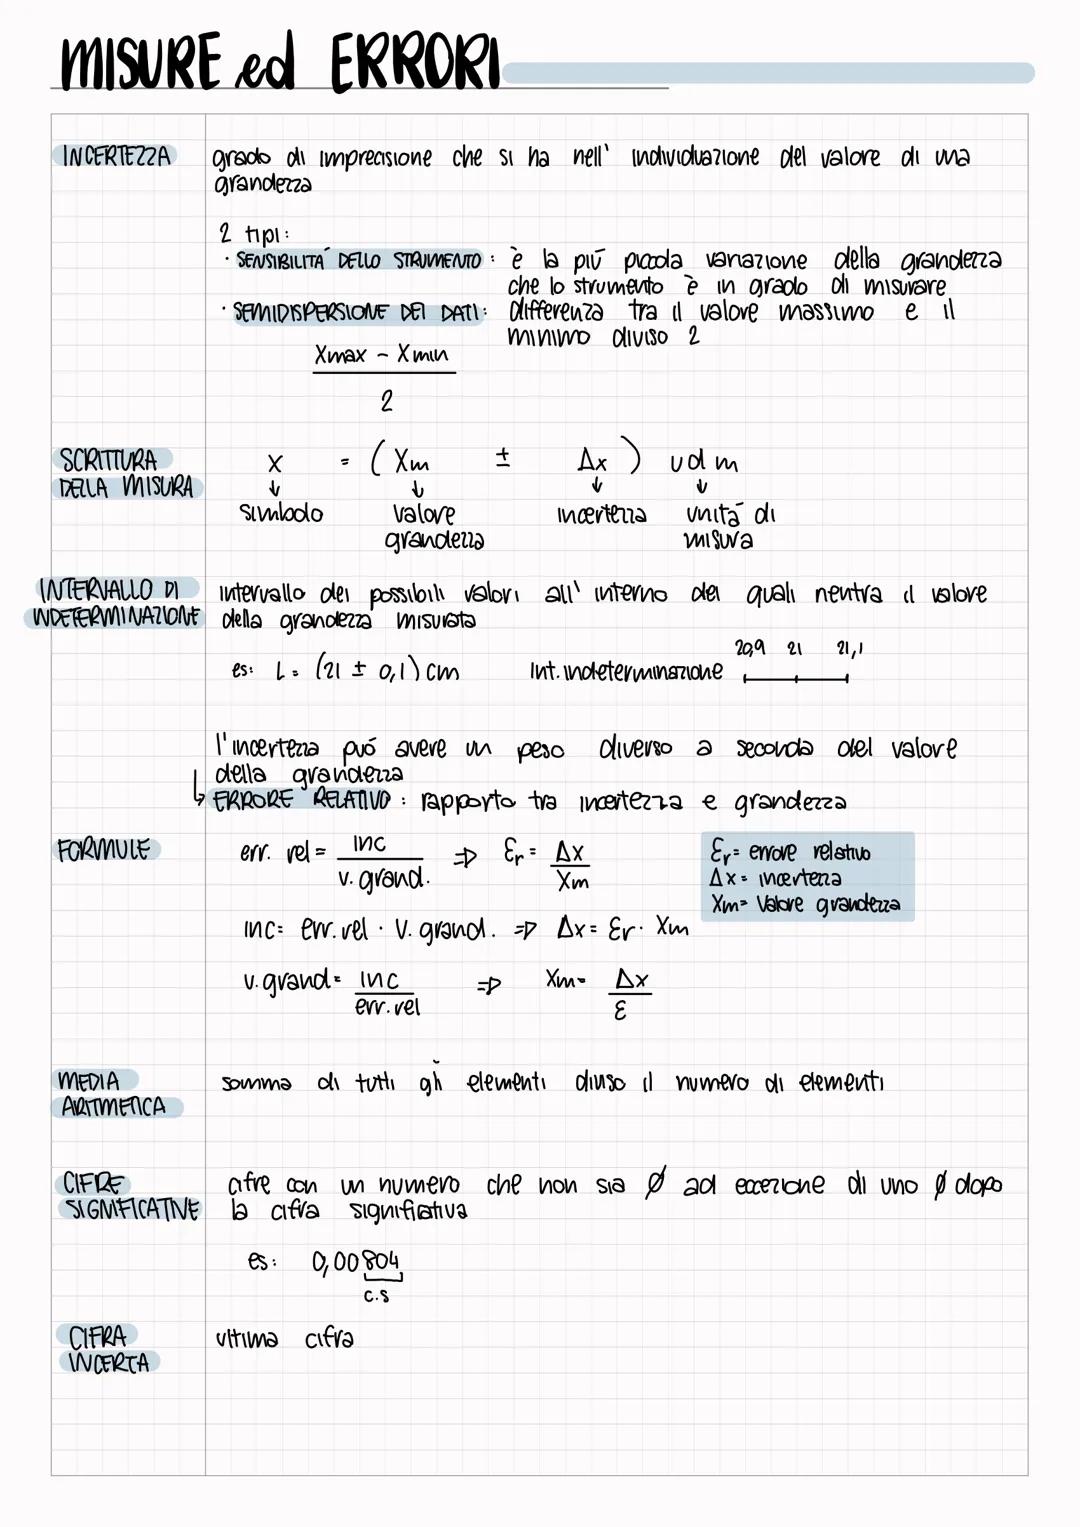 MISURE ed ERRORI
INCERTEZZA
grado di imprecisione che si ha nell' individuazione del valore di una
grandezza
2 tipi:
· SENSIBILITÀ DELLO STRUMENTO: è la più piccola variazione della grandezza
che lo strumento è in grado di misurare
· SEMIDISPERSIONE DEI DATI: differenza tra il valore massimo e il
minimo diviso 2
Xmax - Xmin
2
SCRITTURA
DELLA MISURA
X = (Xm ± Δx) udm
↓ ↓ ↓ ↓
simbolo valore incertezza unità di
grandezza misura
INTERVALLO DI
INDETERMINAZIONE
intervallo dei possibili valori all' interno dei quali rientra il valore
della grandezza misurata
20,9 21 21,1
es: L = (21 ± 0,1) cm Int. indeterminazione
l'incertezza può avere un peso diverso a seconda del valore
della grandezza
↳ ERRORE RELATIVO: rapporto tra incertezza e grandezza
FORMULE
err. rel = inc / v. grand. => Ɛr = Δx / Xm
Ɛr = errore relativo
Δx = incertezza
Xm = Valore grandezza
inc = err. rel · V. grand. => Δx = Ɛr · Xm
v. grand = inc / err. rel => Xm = Δx / Ɛ
MEDIA
ARITMETICA
somma di tutti gli elementi diviso il numero di elementi
CIFRE
SIGNIFICATIVE
cifre con un numero che non sia Ø ad eccezione di uno Ø dopo
la cifra significativa
es: 0,00804
c.s
CIFRA
INCERTA
ultima cifra